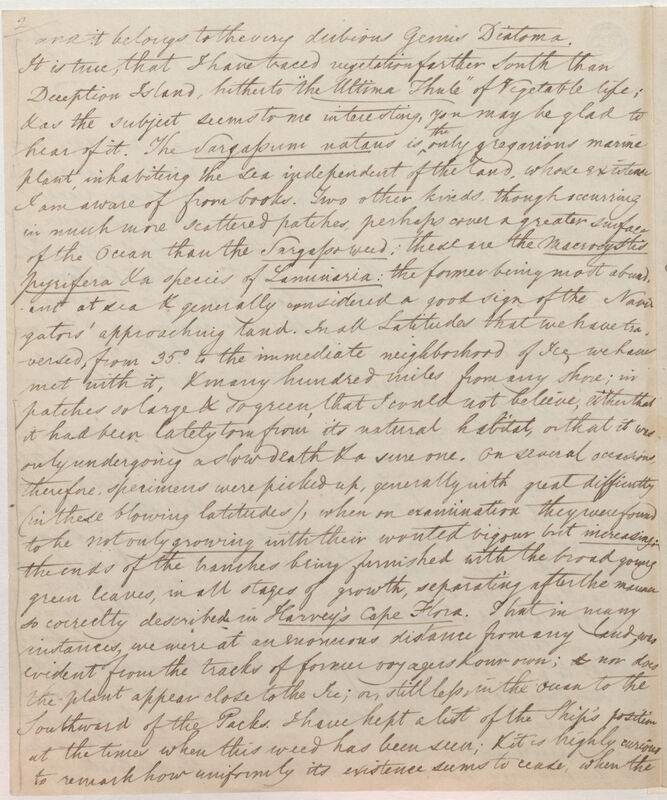 2
and it belongs to the very dubious Genus Diatoma.
It is true, that I have traced vegetation farther South than
Deception Island, hitherto "the Ultima Thule" of Vegetable life;
& as the subject seems to me interesting, you may be glad to
hear of it. The Sargassum natans is, the only gregarious marine
plant, inhabiting the sea independent of the land, whose existence
I am aware of from books. Two other kinds, though occurring
in much more scattered patches, perhaps cover a greater surface
of the Ocean than the Sargasso weed; these are the Macrocystis
pyrifera & a species of Laminaria: the former being most abund-
-ant at sea & generally considered a good sign of the Navi
gators' approaching land. In all Latitudes that we have tra-
versed, from 35° to the immediate neighborhood of Ice, we have
met with it, & many hundred miles from any shore; in
patches so large & so green, that I could not believe, either that
it had been lately torn from its natural habitat, or that it was
only undergoing a slow death & a sure one. On several occasions,
therefore, specimens were picked up, generally with great difficulty
(in these blowing latitudes), when on examination they were found
to be not only growing with their wonted vigour but increasing;
the ends of the branches being furnished with the broad young
green leaves, in all stages of growth, separating after the manner
so correctly described in Harvey's Cape Flora. That in many
instances, we were at an enormous distance from any land, was
evident from the tracks of former voyagers & our own; nor does
the plant appear close to the Ice; or, still less, in the Ocean to the
Southward of the Packs. I have kept a list of the Ship's position
at the times when this weed has been seen; & it is highly curious
to remark how uniformly its existence seems to cease, when the